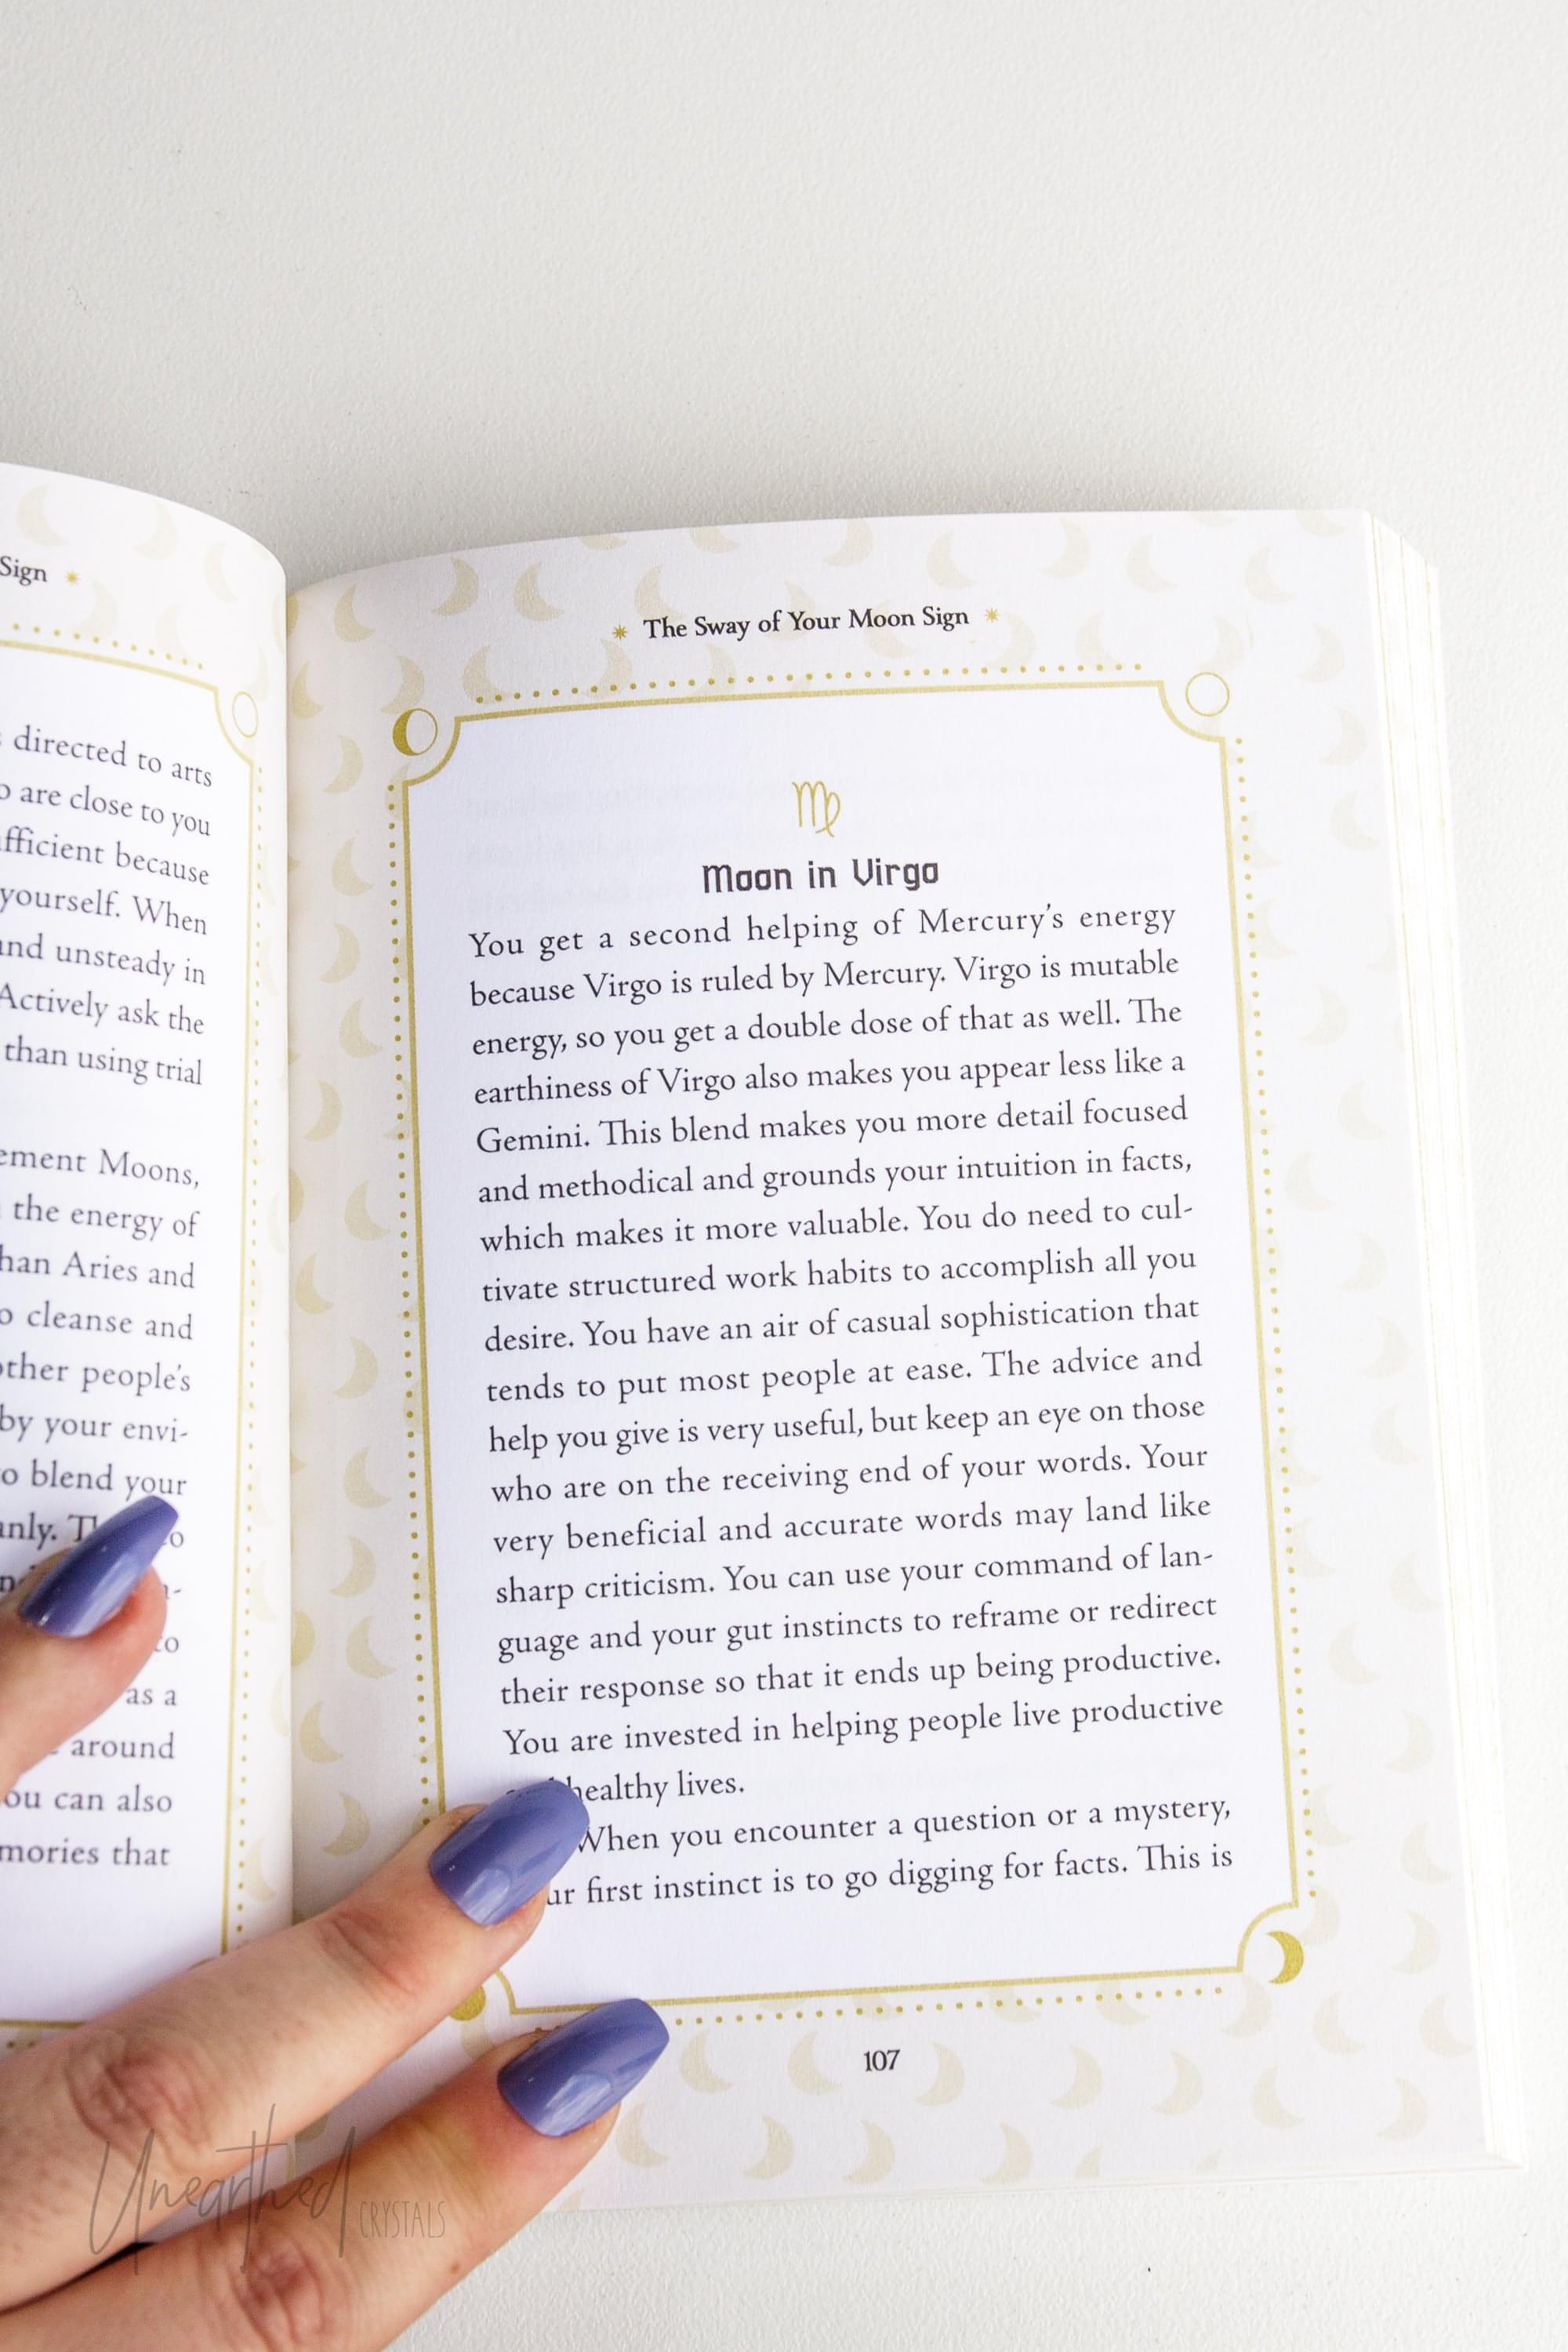 Sign
directed to arts
are close to you
because
yourself. When
unsteady in
Actively ask the
than using trial
Moons,
the energy of
Aries and
cleanse and
people's
by your envi-
blend your
as a
around
can also
that
The Sway of Your Moon Sign
Moon in Virgo
You get a second helping of Mercury's energy
because Virgo is ruled by Mercury. Virgo is mutable
energy, so you get a double dose of that as well. The
earthiness of Virgo also makes you appear less like a
Gemini. This blend makes you more detail focused
and methodical and grounds your intuition in facts,
which makes it more valuable. You do need to cul-
tivate structured work habits to accomplish all you
desire. You have an air of casual sophistication that
tends to put most people at ease. The advice and
help you give is very useful, but keep an eye on those
who are on the receiving end of your words. Your
very beneficial and accurate words may land like
sharp criticism. You can use your command of lan-
guage and your gut instincts to reframe or redirect
their response so that it ends up being productive.
You are invested in helping people live productive
healthy lives.
When you encounter a question or a mystery,
first instinct is to go digging for facts. This is
107
Unearthed CRYSTALS